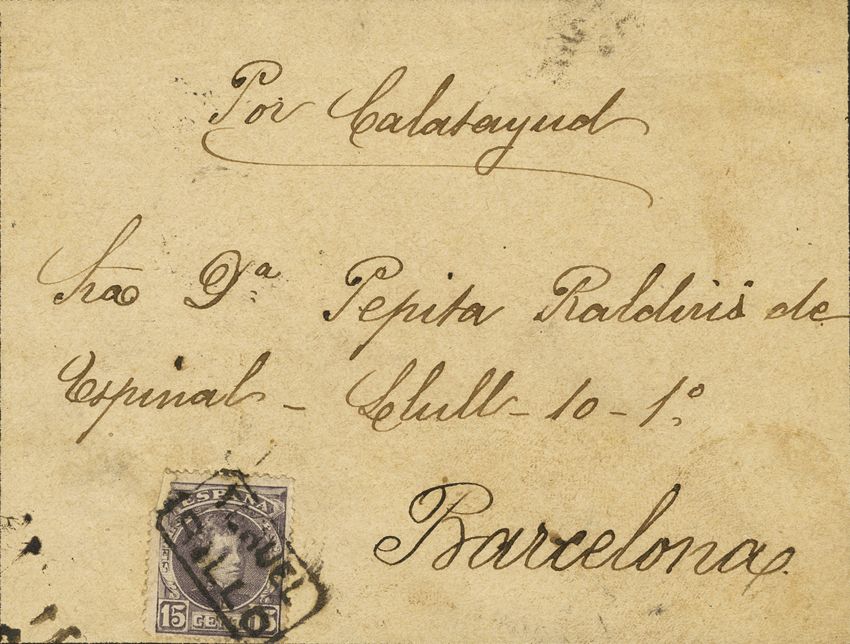 Por Calatayud
Sra Dª Pepita Raldiris de
Espinal - Llull - 10 - 1º
Barcelona
ESPAÑA
TERUEL
15 CENT 15